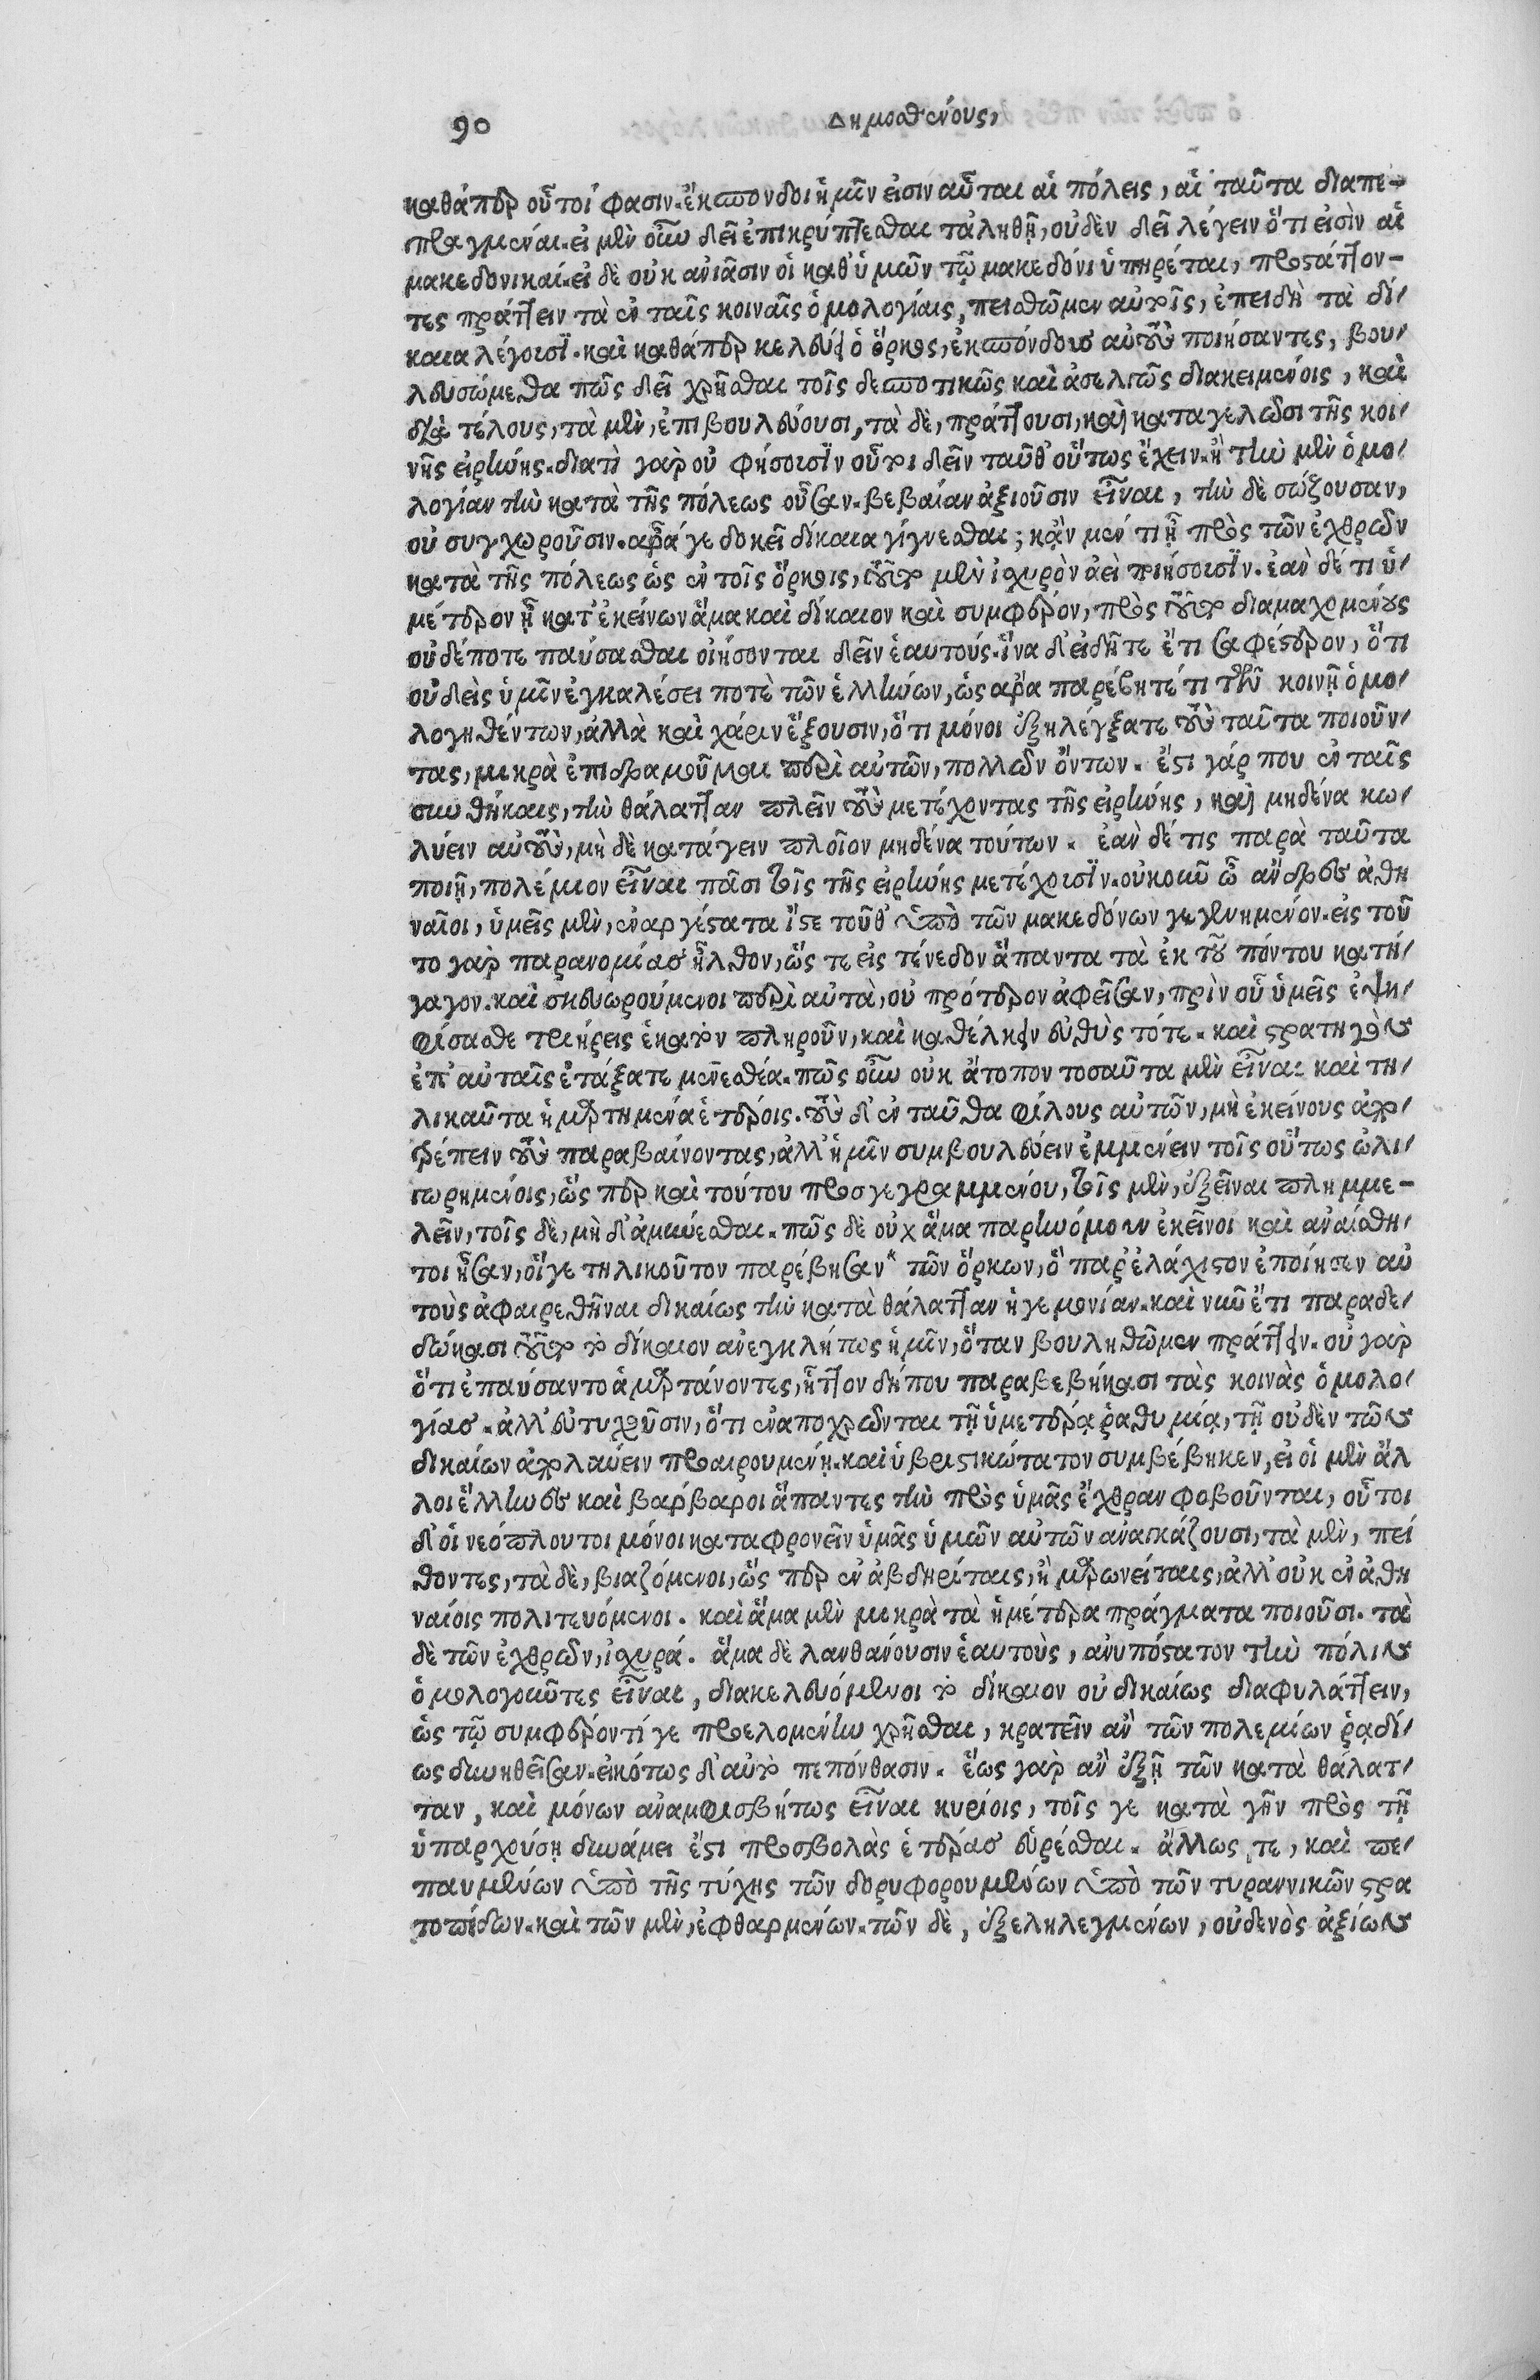 90 Δημοσθένους,
καθάπερ οὗτοί φασιν. ἔκσπονδοι ἡμῖν εἰσιν αὗται αἱ πόλεις, αἱ ταῦτα διαπε-
πραγμέναι. εἰ μὲν οὖν δεῖ ἐπικρύπτεσθαι τἀληθῆ, οὐδὲν δεῖ λέγειν ὅτι εἰσὶν αἱ
μακεδονικαί. εἰ δὲ οὐκ ἀνιᾶσιν οἱ καθ' ὑμῶν τῷ μακεδόνι ὑπηρέται, προστάττον-
τες πράττειν τὰ ἐν ταῖς κοιναῖς ὁμολογίαις, πεισθῶμεν αὐτοῖς, ἐπειδὴ τὰ δί-
καια λέγουσι. καὶ καθάπερ κελεύει ὁ ὅρκος, ἐκσπόνδους αὐτοὺς ποιήσαντες, βου-
λευσώμεθα πῶς δεῖ χρῆσθαι τοῖς δεσποτικῶς καὶ ἀσελγῶς διακειμένοις, καὶ
διὰ τέλους, τὰ μὲν, ἐπιβουλεύουσι, τὰ δὲ, πράττουσι, καὶ καταγελῶσι τῆς κοι-
νῆς εἰρήνης. διατὶ γὰρ οὐ φήσουσιν οὗτοι δεῖν ταῦθ' οὕτως ἔχειν. ἢ τὴν μὲν ὁμο-
λογίαν τὴν κατὰ τῆς πόλεως οὖσαν. βεβαίαν ἀξιοῦσιν εἶναι, τὴν δὲ σώζουσαν,
οὐ συγχωροῦσιν. ἆρά γε δοκεῖ δίκαια γίγνεσθαι; κᾂν μέν τι ᾖ πρὸς τῶν ἐχθρῶν
κατὰ τῆς πόλεως ὡς ἐν τοῖς ὅρκοις, τοῦτο μὲν ἰσχυρὸν ἀεὶ ποιήσουσιν. ἐὰν δέ τι ὑ-
μέτερον ᾖ κατ' ἐκείνων ἅμα καὶ δίκαιον καὶ συμφέρον, πρὸς τοῦτο διαμαχομένους
οὐδέποτε παύσασθαι οἰήσονται δεῖν ἑαυτούς. ἵνα δ' εἰδῆτε ἔτι σαφέστερον, ὅτι
οὐδεὶς ὑμῖν ἐγκαλέσει ποτὲ τῶν ἑλλήνων, ὡς ἄρα παρέβητέ τι τῶν κοινῇ ὁμο-
λογηθέντων, ἀλλὰ καὶ χάριν ἕξουσιν, ὅτι μόνοι ἐξηλέγξατε τοὺς ταῦτα ποιοῦν-
τας, μικρὰ ἐπιδραμοῦμαι περὶ αὐτῶν, πολλῶν ὄντων. ἔστι γάρ που ἐν ταῖς
συνθήκαις, τὴν θάλατταν πλεῖν τοὺς μετέχοντας τῆς εἰρήνης, καὶ μηδένα κω-
λύειν αὐτοὺς, μὴ δὲ κατάγειν πλοῖον μηδένα τούτων. ἐὰν δέ τις παρὰ ταῦτα
ποιῇ, πολέμιον εἶναι πᾶσι τοῖς τῆς εἰρήνης μετέχουσιν. οὐκοῦν ὦ ἄνδρες ἀθη
ναῖοι, ὑμεῖς μὲν, ἐναργέστατα ἴστε τοῦθ' ὑπὸ τῶν μακεδόνων γεγενημένον. εἰς τοῦ
το γὰρ παρανομίας ἦλθον, ὥς τε εἰς τένεδον ἅπαντα τὰ ἐκ τοῦ πόντου κατή-
γαγον. καὶ σκευωρούμενοι περὶ αὐτὰ, οὐ πρότερον ἀφεῖσαν, πρὶν οὗ ὑμεῖς ἐψη-
φίσασθε τριήρεις ἑκατὸν πληροῦν, καὶ καθέλκειν εὐθὺς τότε. καὶ στρατηγὸν
ἐπ' αὐταῖς ἐτάξατε μενεσθέα. πῶς οὖν οὐκ ἄτοπον τοσαῦτα μὲν εἶναι καὶ τη-
λικαῦτα ἡμαρτημένα ἑτέροις. τοὺς δ' ἐνταῦθα φίλους αὐτῶν, μὴ ἐκείνους ἀπο-
τρέπειν τοὺς παραβαίνοντας, ἀλλ' ἡμῖν συμβουλεύειν ἐμμένειν τοῖς οὕτως ὠλι-
γωρημένοις, ὥς περ καὶ τούτου προσγεγραμμένου, τοῖς μὲν, ἐξεῖναι πλημμε-
λεῖν, τοῖς δὲ, μὴ δ' ἀμύνεσθαι. πῶς δὲ οὐχ ἅμα παρηνόμουν ἐκεῖνοι καὶ ἀναίσθη-
τοι ἦσαν, οἵ γε τηλικοῦτον παρέβησαν* τῶν ὅρκων, ὃ παρ' ἐλάχιστον ἐποίησεν αὐ
τοὺς ἀφαιρεθῆναι δικαίως τὴν κατὰ θάλατταν ἡγεμονίαν. καὶ νῦν ἔτι παραδε-
δώκασι τοῦτο τὸ δίκαιον ἀνεγκλήτως ἡμῖν, ὅταν βουληθῶμεν πράττειν. οὐ γὰρ
ὅτι ἐπαύσαντο ἁμαρτάνοντες, ἧττον δήπου παραβεβήκασι τὰς κοινὰς ὁμολο-
γίας. ἀλλ' εὐτυχοῦσιν, ὅτι ἐναποχρῶνται τῇ ὑμετέρᾳ ῥαθυμίᾳ, τῇ οὐδὲν τῶν
δικαίων ἀπολαύειν προαιρουμένῃ. καὶ ὑβριστικώτατον συμβέβηκεν, εἰ οἱ μὲν ἄλ
λοι ἕλληνες καὶ βάρβαροι ἅπαντες τὴν πρὸς ὑμᾶς ἔχθραν φοβοῦνται, οὗτοι
δ' οἱ νεόπλουτοι μόνοι καταφρονεῖν ὑμᾶς ὑμῶν αὐτῶν ἀναγκάζουσι, τὰ μὲν, πεί
θοντες, τὰ δὲ, βιαζόμενοι, ὥς περ ἐν ἀβδηρίταις, ἢ μαρωνείταις, ἀλλ' οὐκ ἐν ἀθη
ναίοις πολιτευόμενοι. καὶ ἅμα μὲν μικρὰ τὰ ἡμέτερα πράγματα ποιοῦσι. τὰ
δὲ τῶν ἐχθρῶν, ἰσχυρά. ἅμα δὲ λανθάνουσιν ἑαυτοὺς, ἀνυπόστατον τὴν πόλιν
ὁμολογοῦντες εἶναι, διακελευόμενοι τὸ δίκαιον οὐ δικαίως διαφυλάττειν,
ὡς τῷ συμφέροντί γε προελομένην χρῆσθαι, κρατεῖν ἂν τῶν πολεμίων ῥᾳδί-
ως δυνηθεῖσαν. εἰκότως δ' αὐτὸ πεπόνθασιν. ἕως γὰρ ἂν ἐξῇ τῶν κατὰ θάλατ-
ταν, καὶ μόνων ἀναμφισβήτως εἶναι κυρίοις, τοῖς γε κατὰ γῆν πρὸς τῇ
ὑπαρχούσῃ δυνάμει ἔστι προσβολὰς ἑτέρας εὑρέσθαι. ἄλλως τε, καὶ πε-
παυμένων ὑπὸ τῆς τύχης τῶν δορυφορουμένων ὑπὸ τῶν τυραννικῶν στρα
τοπέδων. καὶ τῶν μὲν, ἐφθαρμένων. τῶν δὲ, ἐξεληλεγμένων, οὐδενὸς ἀξίων